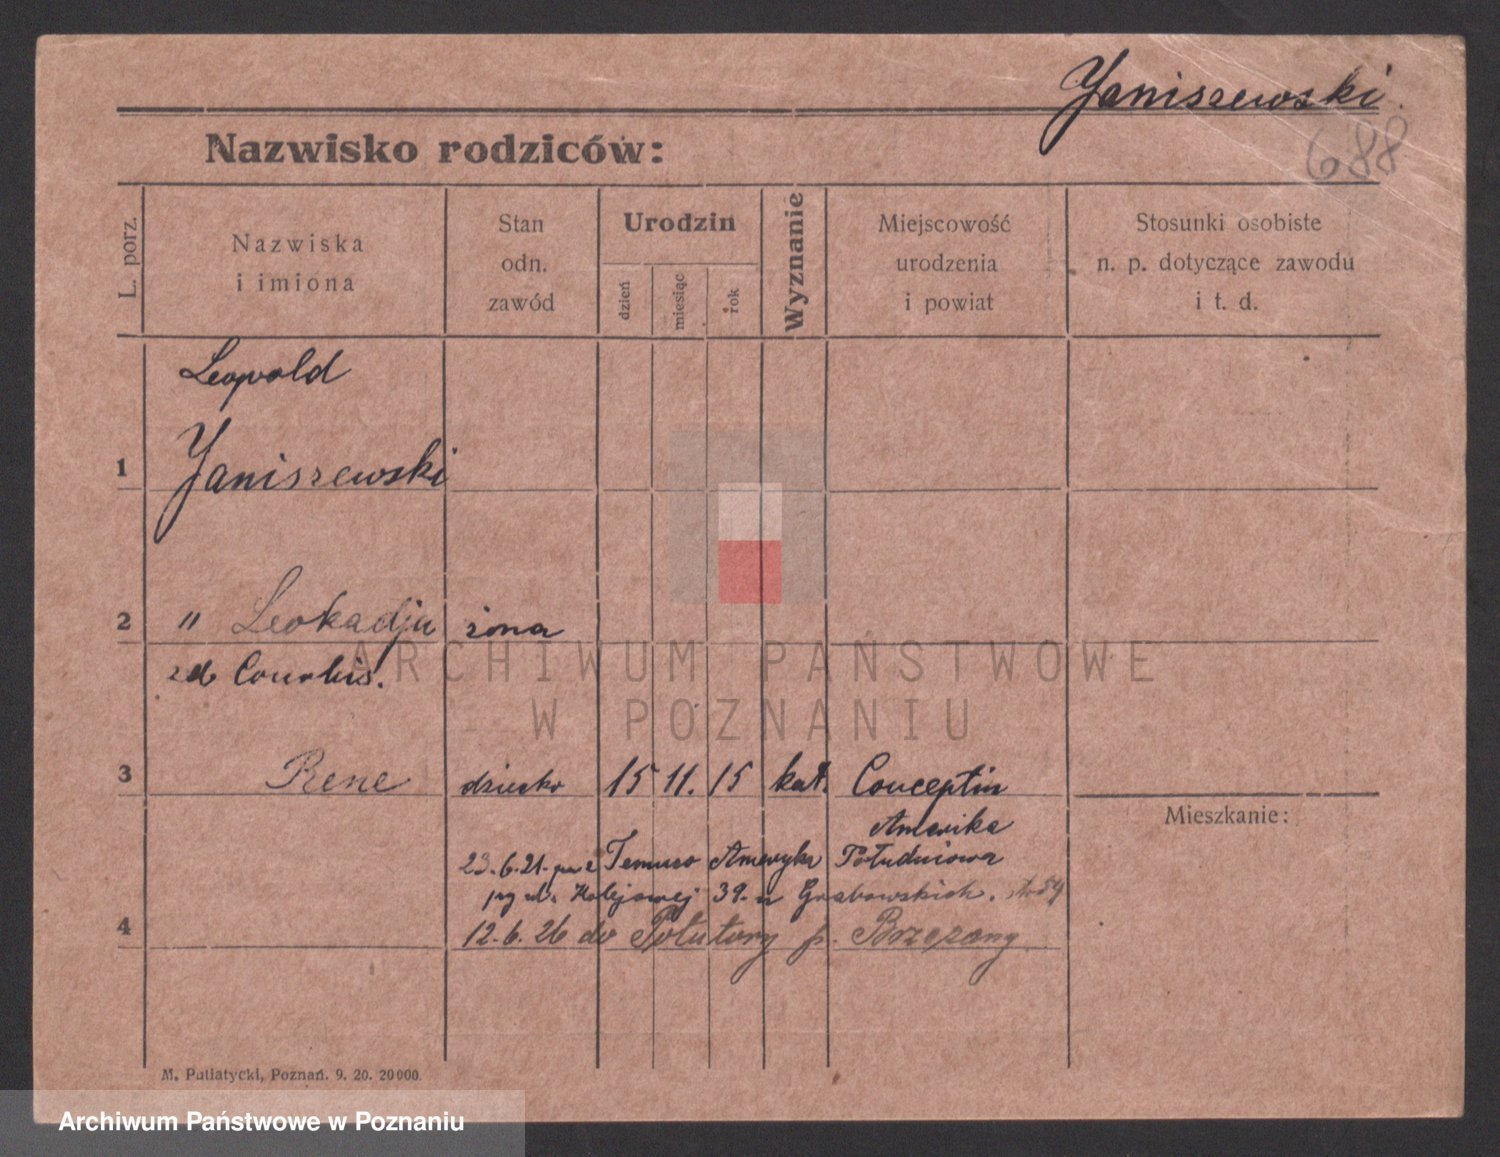 Janiszewski
688
Nazwisko rodziców:
L. porz.
Nazwiska
i imiona
Stan
odn.
zawód
Urodzin
dzień
miesiąc
rok
Wyznanie
Miejscowość
urodzenia
i powiat
Stosunki osobiste
n. p. dotyczące zawodu
i t. d.
Leopold
1 Janiszewski
2 " Leokadja żona
ARCHIWUM PAŃSTWOWE
W POZNANIU
3 Rene dziecko 15 11. 15 kat. Conceptin
Amerika
Mieszkanie:
23.6.21. Temuco Ameryka Południowa
ul. Kolejowej 39. u Grabowskich.
4 12.6.26 do Potutory p. Brzeżany
M. Putiatycki, Poznań. 9. 20. 20000.
Archiwum Państwowe w Poznaniu